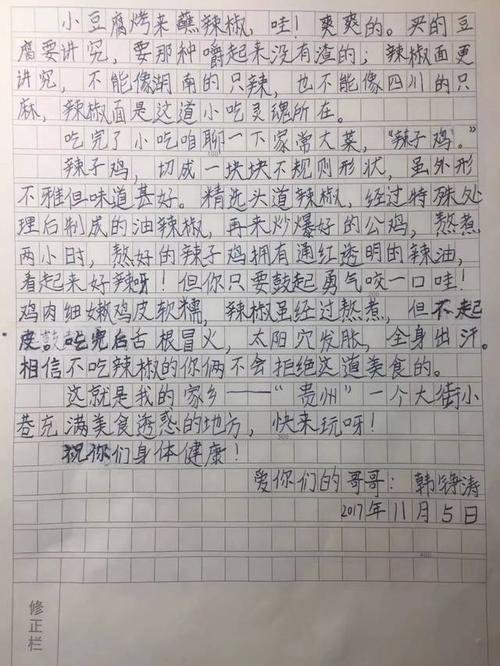 小豆腐烤来蘸辣椒，哇！爽爽的。买的豆
腐要讲究，要那种嚼起来没有渣的；辣椒面更
讲究，不能像湖南的只辣，也不能像四川的只
麻，辣椒面是这道小吃灵魂所在。
吃完了小吃咱聊一下家常大菜，“辣子鸡。”
辣子鸡，切成一块块不规则形状，虽外形
不雅但味道甚好。精选头道辣椒，经过特殊处
理后制成的油辣椒，再来炒爆好的公鸡，熬煮
两小时，熬好的辣子鸡拥有通红透明的辣油，
看起来好辣呀！但你只要鼓起勇气咬一口哇！
鸡肉细嫩鸡皮软糯，辣椒虽经过熬煮，但不起
皮，吃完后舌根冒火，太阳穴发胀，全身出汗。
相信不吃辣椒的你俩不会拒绝这道美食的。
这就是我的家乡——“贵州”一个大街小
巷充满美食诱惑的地方，快来玩呀！
祝你们身体健康！
爱你们的哥哥：韩铮涛
2017年11月5日
修正栏